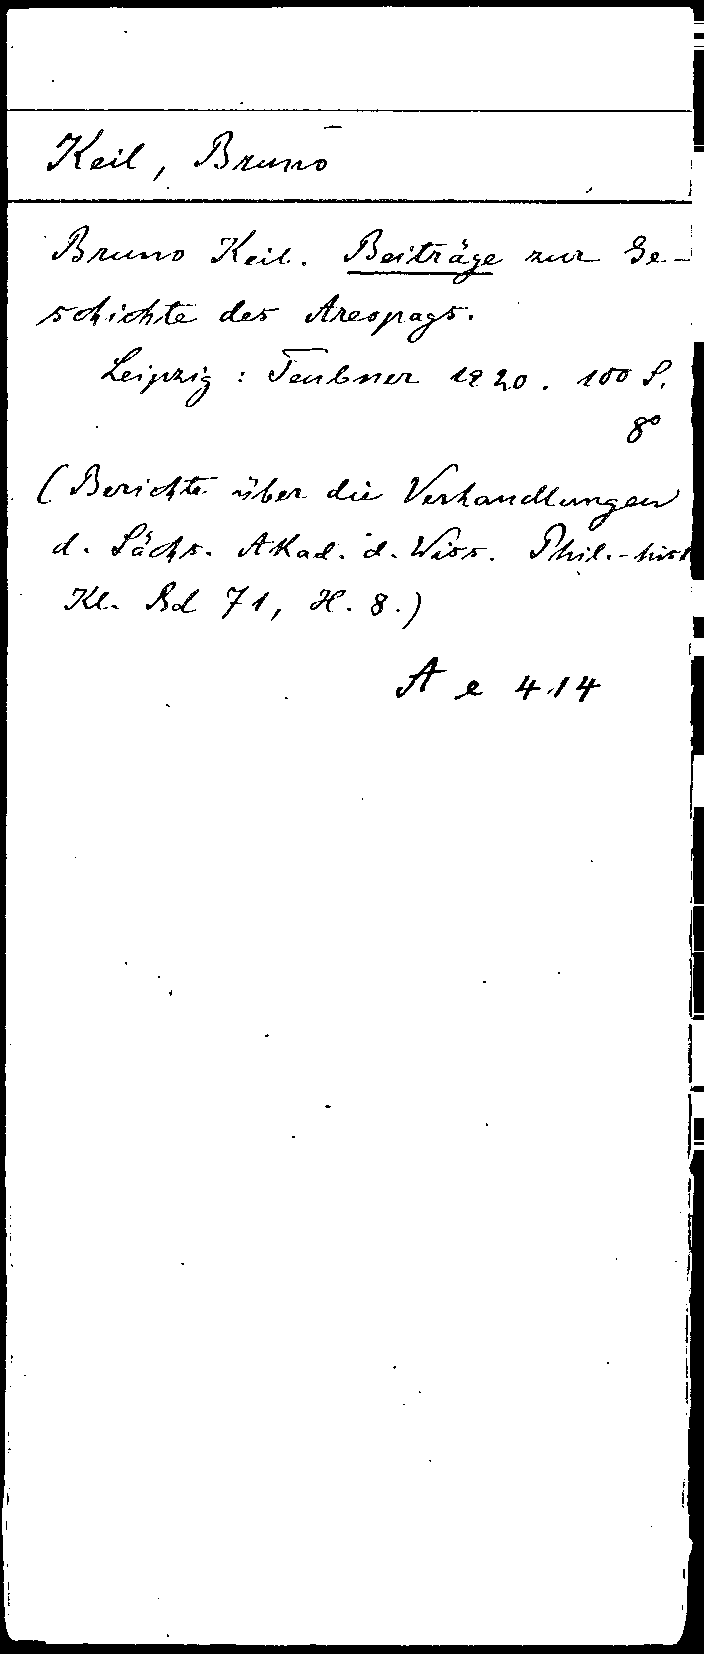 Keil, Bruno
Bruno Keil. Beiträge zur Ge-
schichte des Areopags.
Leipzig : Teubner 1920. 100 S.
8°
(Berichte über die Verhandlungen
d. Sächs. Akad. d. Wiss. Phil.-hist
Kl. Bd 71, H. 8.)
A e 414